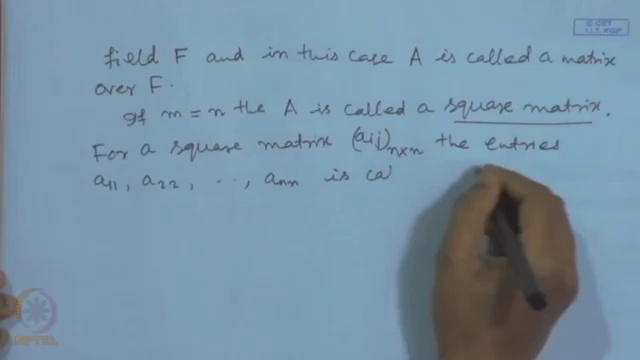 © CET
I.I.T. KGP
field F and in this case A is called a matrix
over F.
If m = n the A is called a square matrix.
For a square matrix (aij)n×n the entries
a11, a22, .., ann is cal
NPTEL